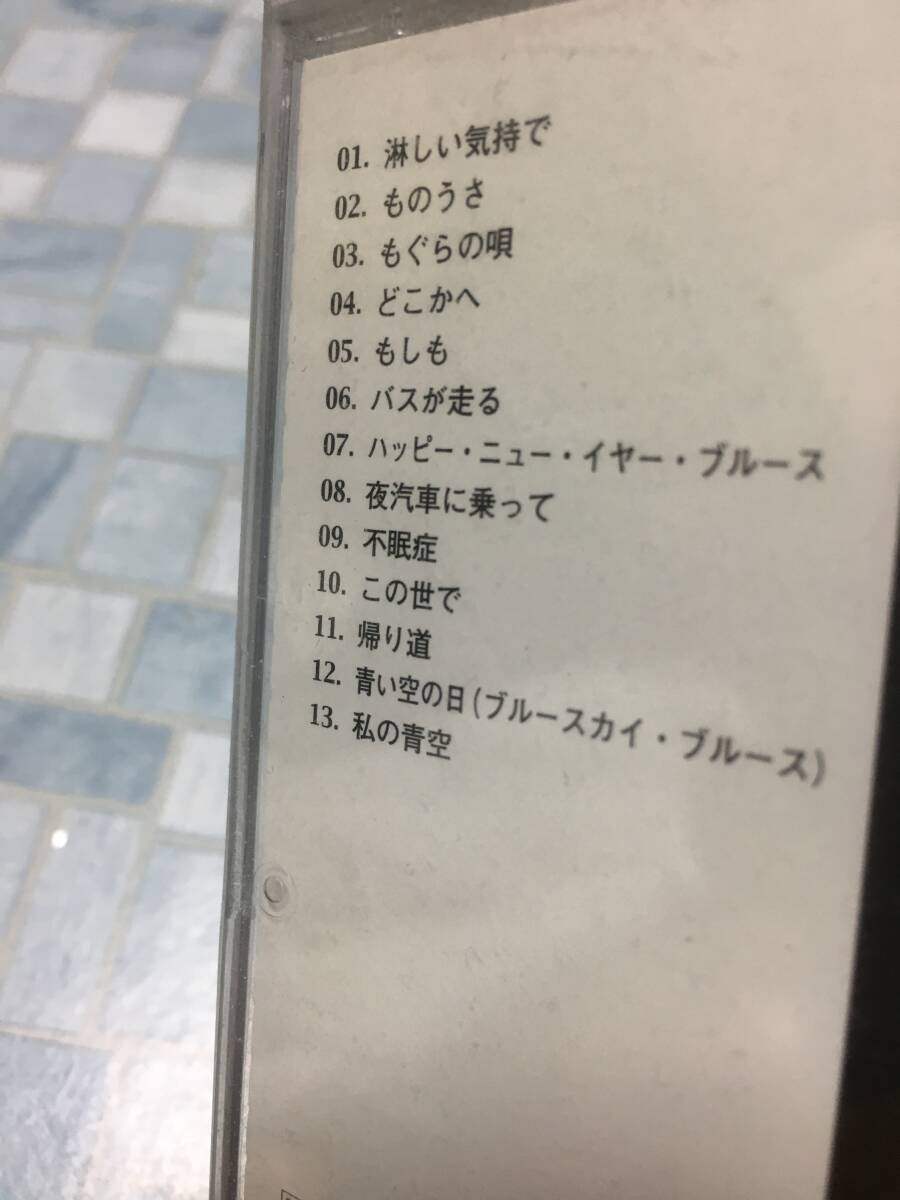 01. 淋しい気持で
02. ものうさ
03. もぐらの唄
04. どこかへ
05. もしも
06. バスが走る
07. ハッピー・ニュー・イヤー・ブルース
08. 夜汽車に乗って
09. 不眠症
10. この世で
11. 帰り道
12. 青い空の日(ブルースカイ・ブルース)
13. 私の青空